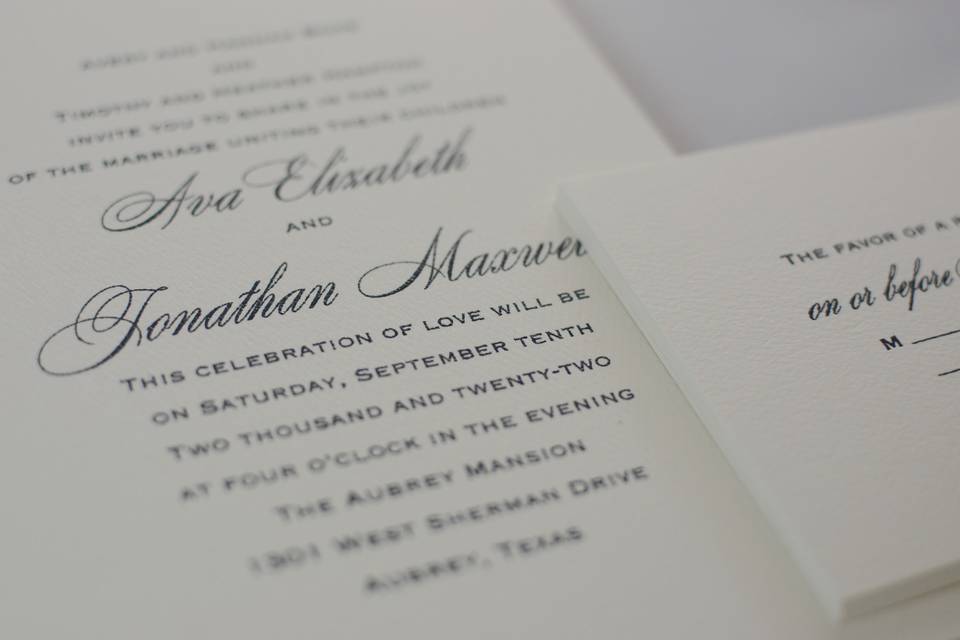 AND
TIMOTHY AND HEATHER
INVITE YOU TO SHARE IN THE JOY
OF THE MARRIAGE UNITING THEIR CHILDREN
Ava Elizabeth
AND
Jonathan Maxwel
THIS CELEBRATION OF LOVE WILL BE
ON SATURDAY, SEPTEMBER TENTH
TWO THOUSAND AND TWENTY-TWO
AT FOUR O'CLOCK IN THE EVENING
THE AUBREY MANSION
1301 WEST SHERMAN DRIVE
AUBREY, TEXAS
THE FAVOR OF A
on or before
M